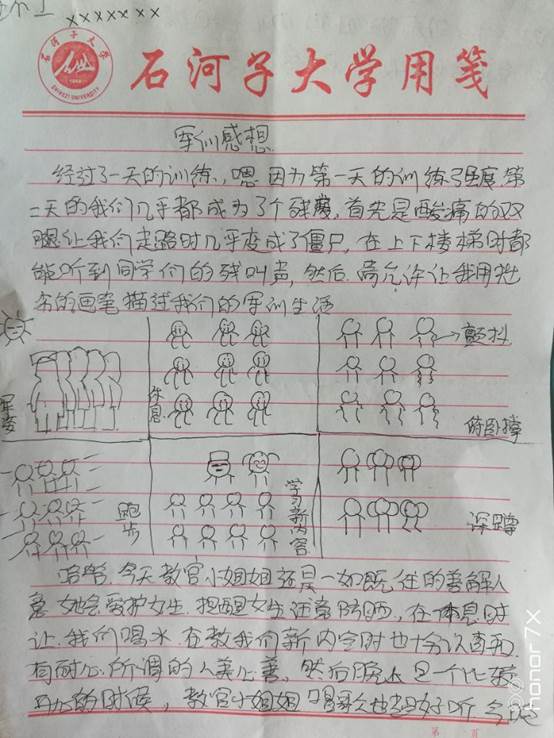 ×××××××
石河子大学
SHIHEZI UNIVERSITY
石河子大学用笺
军训感想
经过了一天的训练,嗯因为第一天的训练强度,第
二天的我们几乎都成为了个残废,首先是酸痛的双
腿让我们走路时几乎变成了僵尸,在上下楼梯时都
能听到同学们的残叫声,然后请允许让我用拙
劣的画笔描述我们的军训生活
军姿
休息
颤抖
俯卧撑
跑步
学习新内容
深蹲
哈哈,今天教官小姐姐还是一如既往的善解人
意她会爱护女生,提醒女生注意防晒,在休息时
让我们喝水在教我们新内容时也十分认真和
有耐心所谓的人美心善,然后晚上是一个比较
的时候,教官小姐姐唱歌也超好听
honor7x
第 页